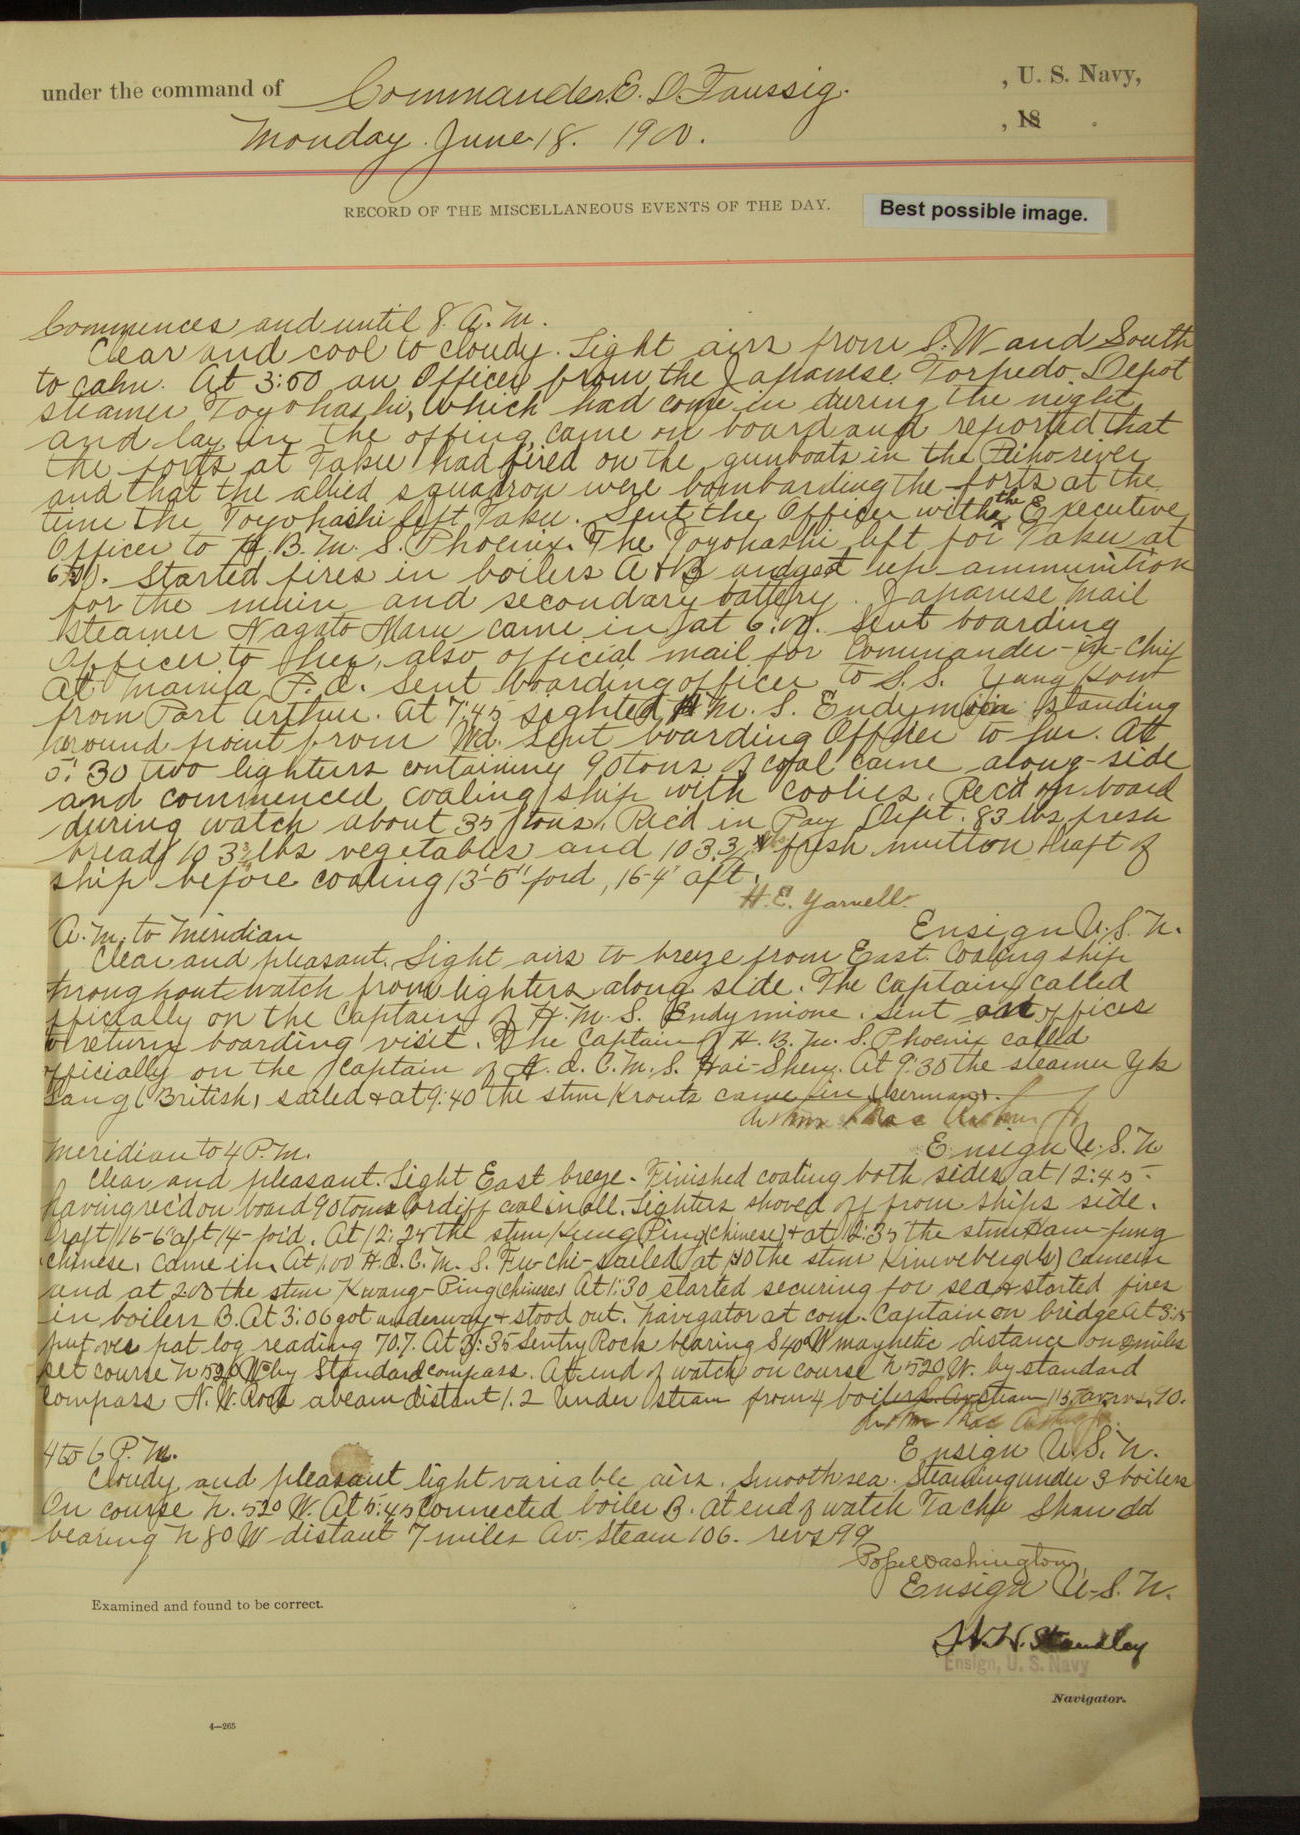 under the command of Commander E. D. Taussig. , U. S. Navy,
Monday. June 18. 1900. , 18 .
RECORD OF THE MISCELLANEOUS EVENTS OF THE DAY.
Best possible image.
Commences and until 8. A. M.
Clear and cool to cloudy. Light airs from S.W and South
to calm. At 3:50 an Officer from the Japanese Torpedo Depot
steamer Toyohashi, which had come in during the night
and lay in the offing came on board and reported that
the forts at Taku had fired on the gunboats in the Peiho river
and that the allied squadron were bombarding the forts at the
time the Toyohashi left Taku. Sent the Officer with the Executive
Officer to H. B. M. S. Phoenix. The Toyohashi left for Taku at
Started fires in boilers A & B and got up ammunition
for the main and secondary battery. Japanese Mail
steamer Nagato Maru came in at 6:00. Sent boarding
officer to her, also official mail for Commander-in-Chief
at Manila P. I. Sent boarding officer to S. S.
from Port Arthur. At 7:45 sighted H. M. S. Endymion standing
around point from Wd. Sent boarding Officer to her. At
5:30 two lighters containing 90 tons of coal came along-side
and commenced coaling ship with coolies. Rec'd on board
during watch about 35 tons. Rec'd in Pay Dept. 83 lbs fresh
bread 103 3/4 lbs vegetables and 103 3/4 fresh mutton Draft of
ship before coaling 13'-6" ford, 16-4" aft.
H. E. Yarnell.
Ensign U. S. N.
A. M. to Meridian
Clear and pleasant. Light airs to breeze from East. Coaling ship
throughout watch from lighters along side. The Captain called
officially on the Captain of H. M. S. Endymione. Sent an officer
to return boarding visit. The Captain of H. B. M. S. Phoenix called
officially on the Captain of H. I. C. M. S. Hai-Shen. At 9:30 the steamer Yk
Sang (British) sailed & at 9:40 the stmr came in (German).
Ensign U. S. N
Meridian to 4 P. M.
Clear and pleasant. Light East breeze. Finished coaling both sides at 12:45
having rec'd on board 90 tons Cardiff coal in all. Lighters shoved off from ships side.
Draft 16-6" aft 14- for'd. At the stmr (Chinese) & at 12:35 the stmr
Chinese, came in. At 1:00 H. I. C. M. S. Fu-chi- sailed at the stmr came in
and at the stmr Kwang-Ping (Chinese) At 1:30 started securing for sea & started fires
in boilers B. At 3:06 got underway & stood out. Navigator at com. Captain on bridge At 3:15
put over pat log reading 70.7. At 3:35 Sentry Rock bearing S 40° W magnetic distance miles
set course N 52° W by Standard compass. At end of watch on course N 52° W. by standard
compass N. W. Rock abeam distant 1.2 Under steam from 4 boilers. Av steam 115, av. revs, 90.
Ensign U. S. N.
4 to 6 P. M.
Cloudy and pleasant light variable airs. Smooth sea. Steaming under 3 boilers
On course N. 52° W. At 5:45 connected boiler B. At end of watch
bearing N 80 W distant 7 miles Av. Steam 106. revs 99
Pope Washington
Ensign U. S. N.
Examined and found to be correct.
W. H. Standley
Ensign, U. S. Navy
Navigator.
4—265